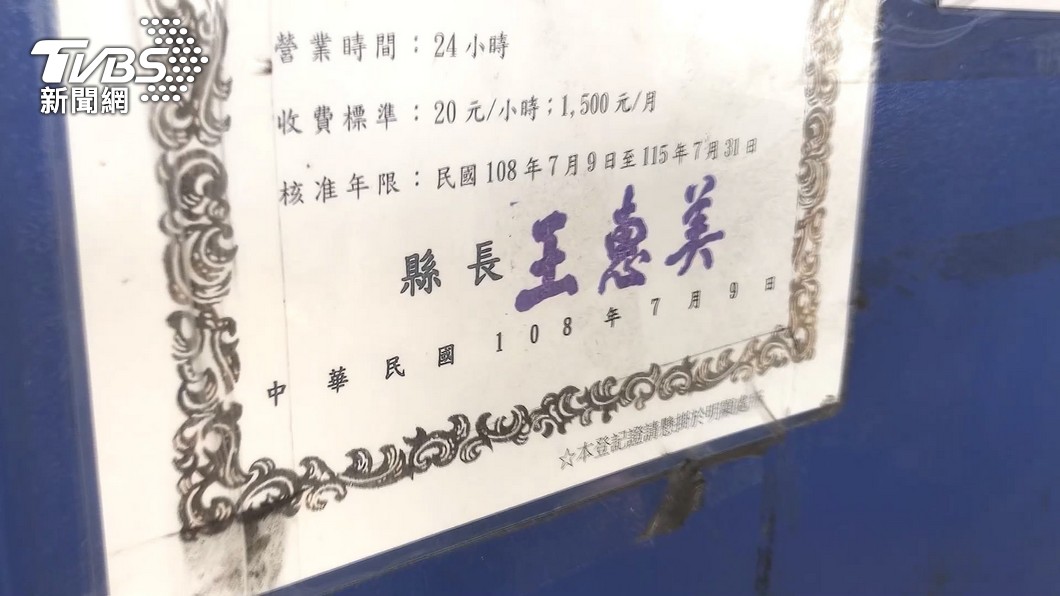 TVBS
新聞網
營業時間：24小時
收費標準：20元/小時；1,500元/月
核准年限：民國108年7月9日至115年7月31日
縣長 王惠美
中華民國108年7月9日
☆本登記證請懸掛於明顯處